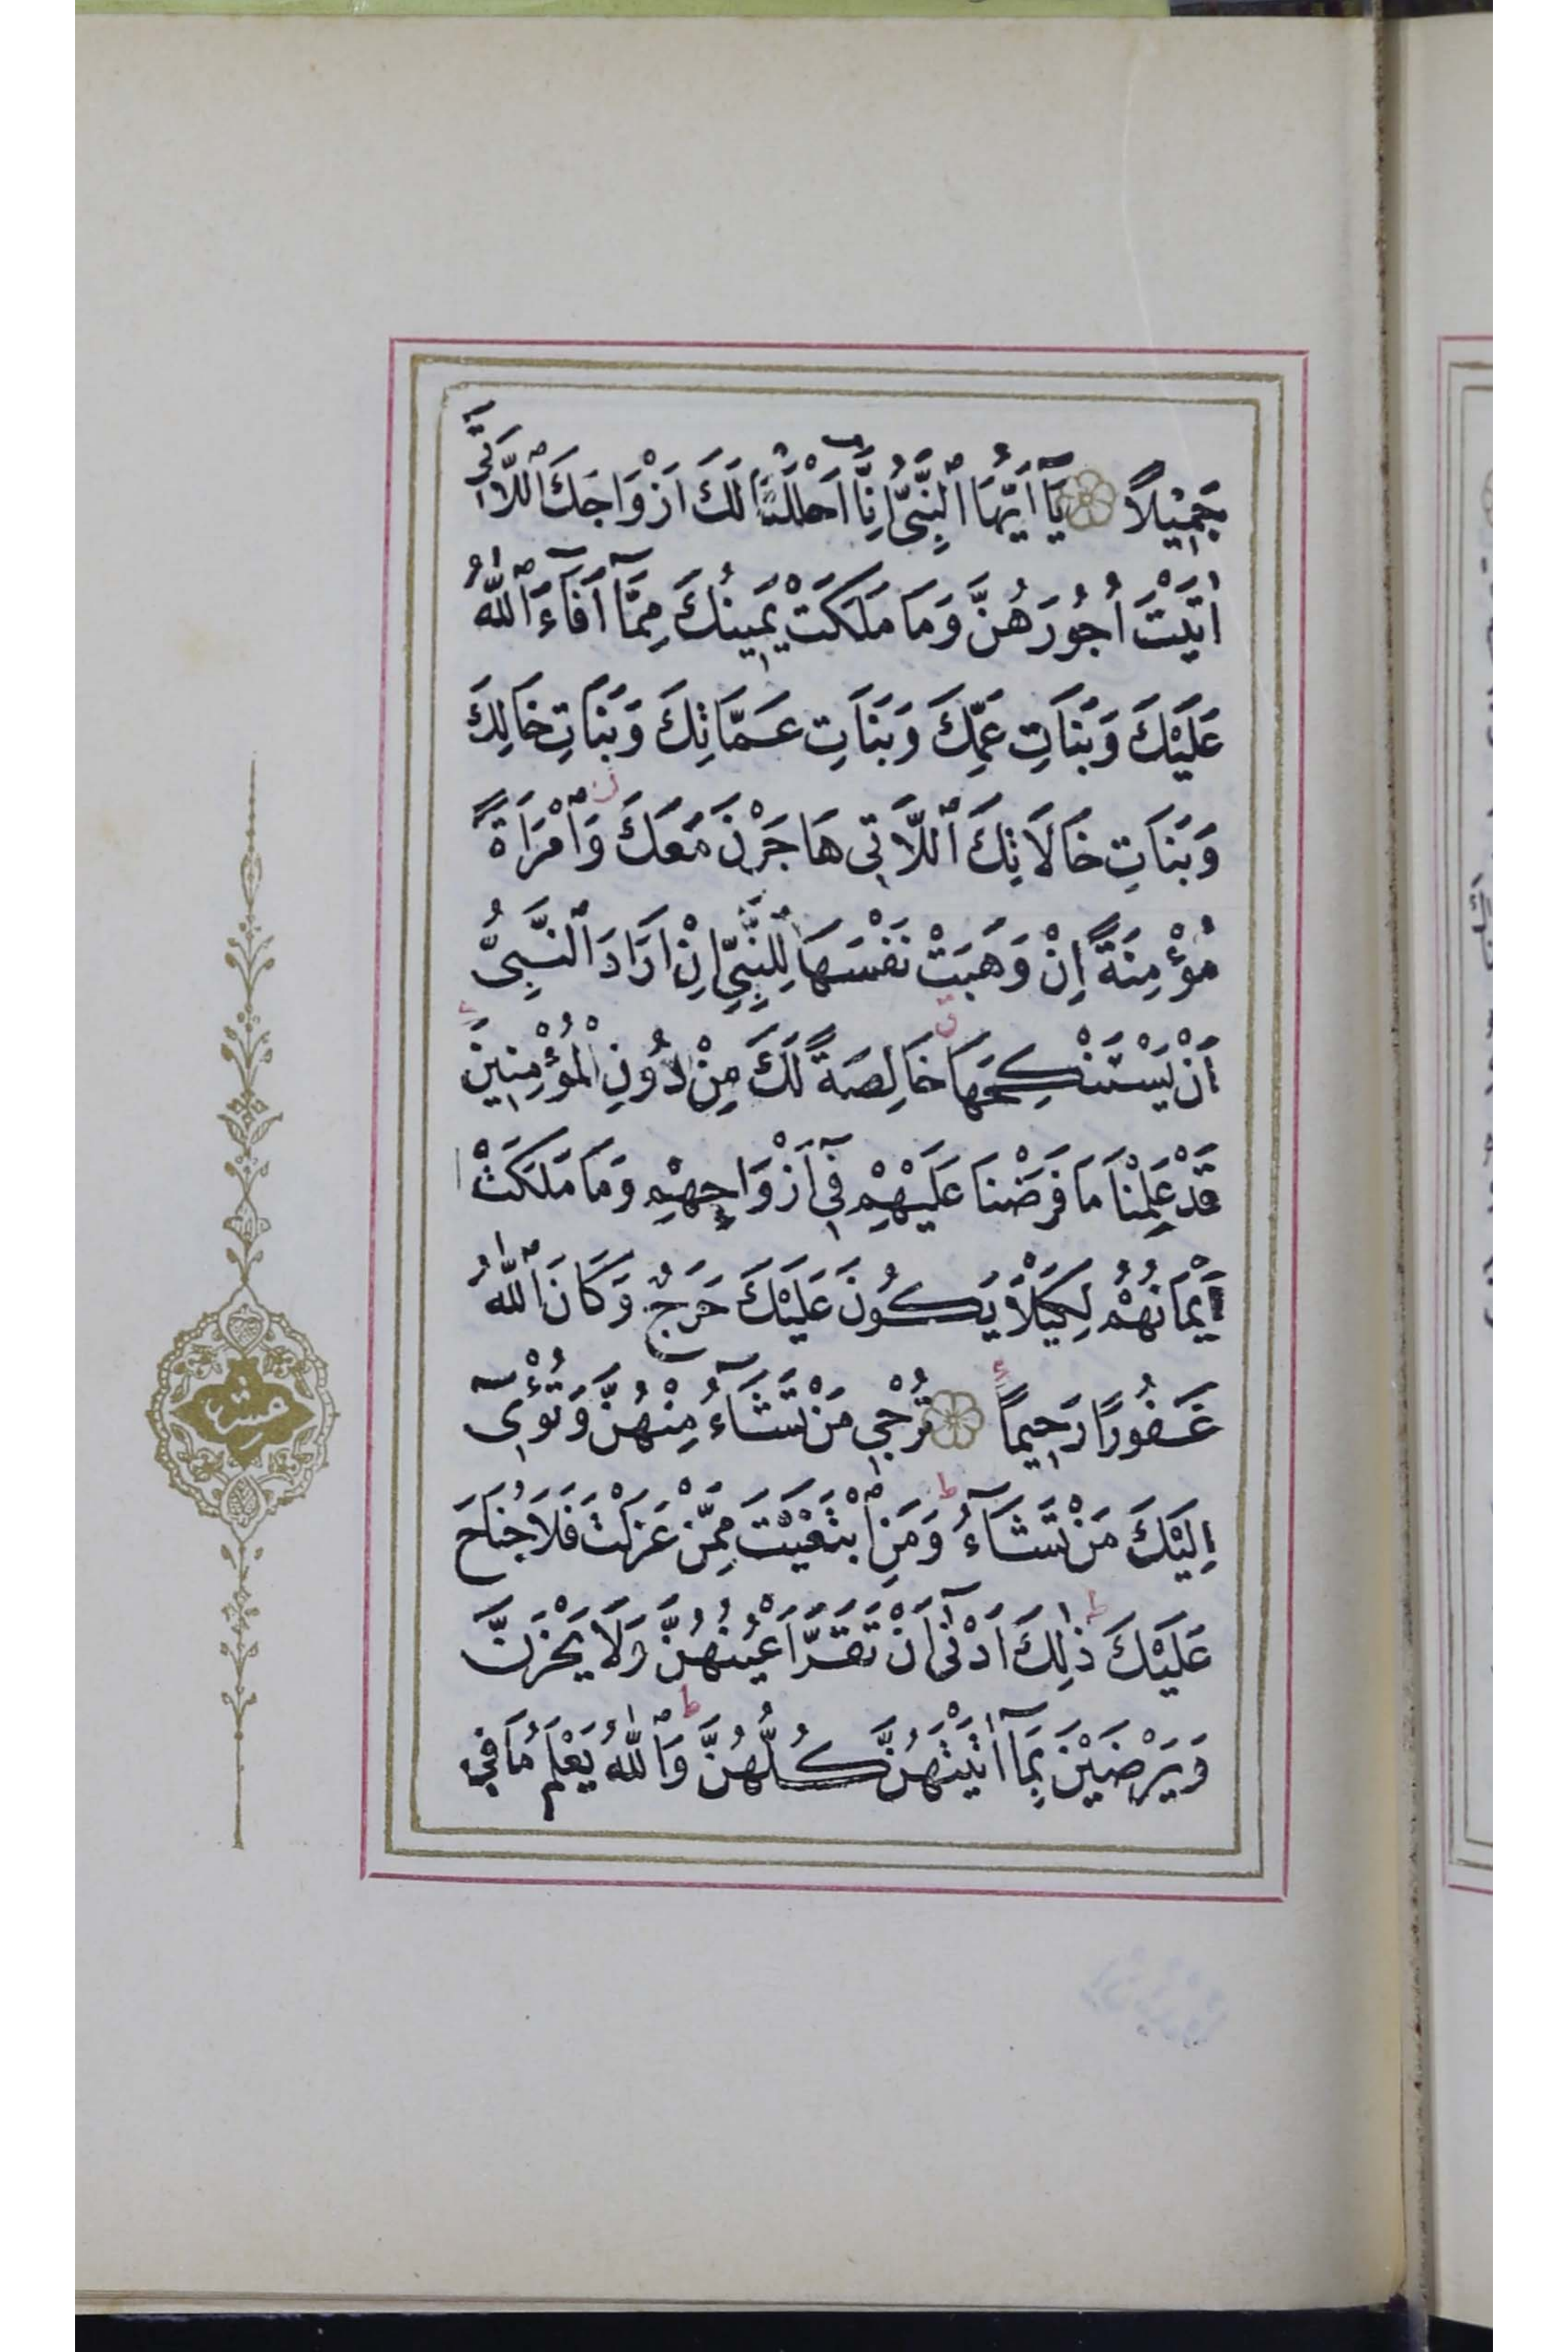 جَمِيْلًا يَٓا اَيُّهَا ٱلنَّبِيُّ اِنَّٓا اَحْلَلْنَا لَكَ اَزْوَاجَكَ ٱللَّاتِٓي
اٰتَيْتَ اُجُورَهُنَّ وَمَا مَلَكَتْ يَمِينُكَ مِمَّٓا اَفَٓاءَ ٱللّٰهُ
عَلَيْكَ وَبَنَاتِ عَمِّكَ وَبَنَاتِ عَمَّاتِكَ وَبَنَاتِ خَالِكَ
وَبَنَاتِ خَالَاتِكَ ٱللَّاتِي هَاجَرْنَ مَعَكَ وَٱمْرَاَةً
مُؤْمِنَةً اِنْ وَهَبَتْ نَفْسَهَا لِلنَّبِيِّ اِنْ اَرَادَ ٱلنَّبِيُّ
اَنْ يَسْتَنْكِحَهَا خَالِصَةً لَكَ مِنْ دُونِ الْمُؤْمِنِينَ
قَدْ عَلِمْنَا مَا فَرَضْنَا عَلَيْهِمْ فِٓي اَزْوَاجِهِمْ وَمَا مَلَكَتْ
اَيْمَانُهُمْ لِكَيْلَا يَكُونَ عَلَيْكَ حَرَجٌ وَكَانَ ٱللّٰهُ
غَفُورًا رَحِيمًا تُرْجِي مَنْ تَشَٓاءُ مِنْهُنَّ وَتُؤْٓىِ
اِلَيْكَ مَنْ تَشَٓاءُ وَمَنِ ٱبْتَغَيْتَ مِمَّنْ عَزَلْتَ فَلَا جُنَاحَ
عَلَيْكَ ذٰلِكَ اَدْنٰٓى اَنْ تَقَرَّ اَعْيُنُهُنَّ وَلَا يَحْزَنَّ
وَيَرْضَيْنَ بِمَٓا اٰتَيْتَهُنَّ كُلُّهُنَّ وَٱللّٰهُ يَعْلَمُ مَا فِي